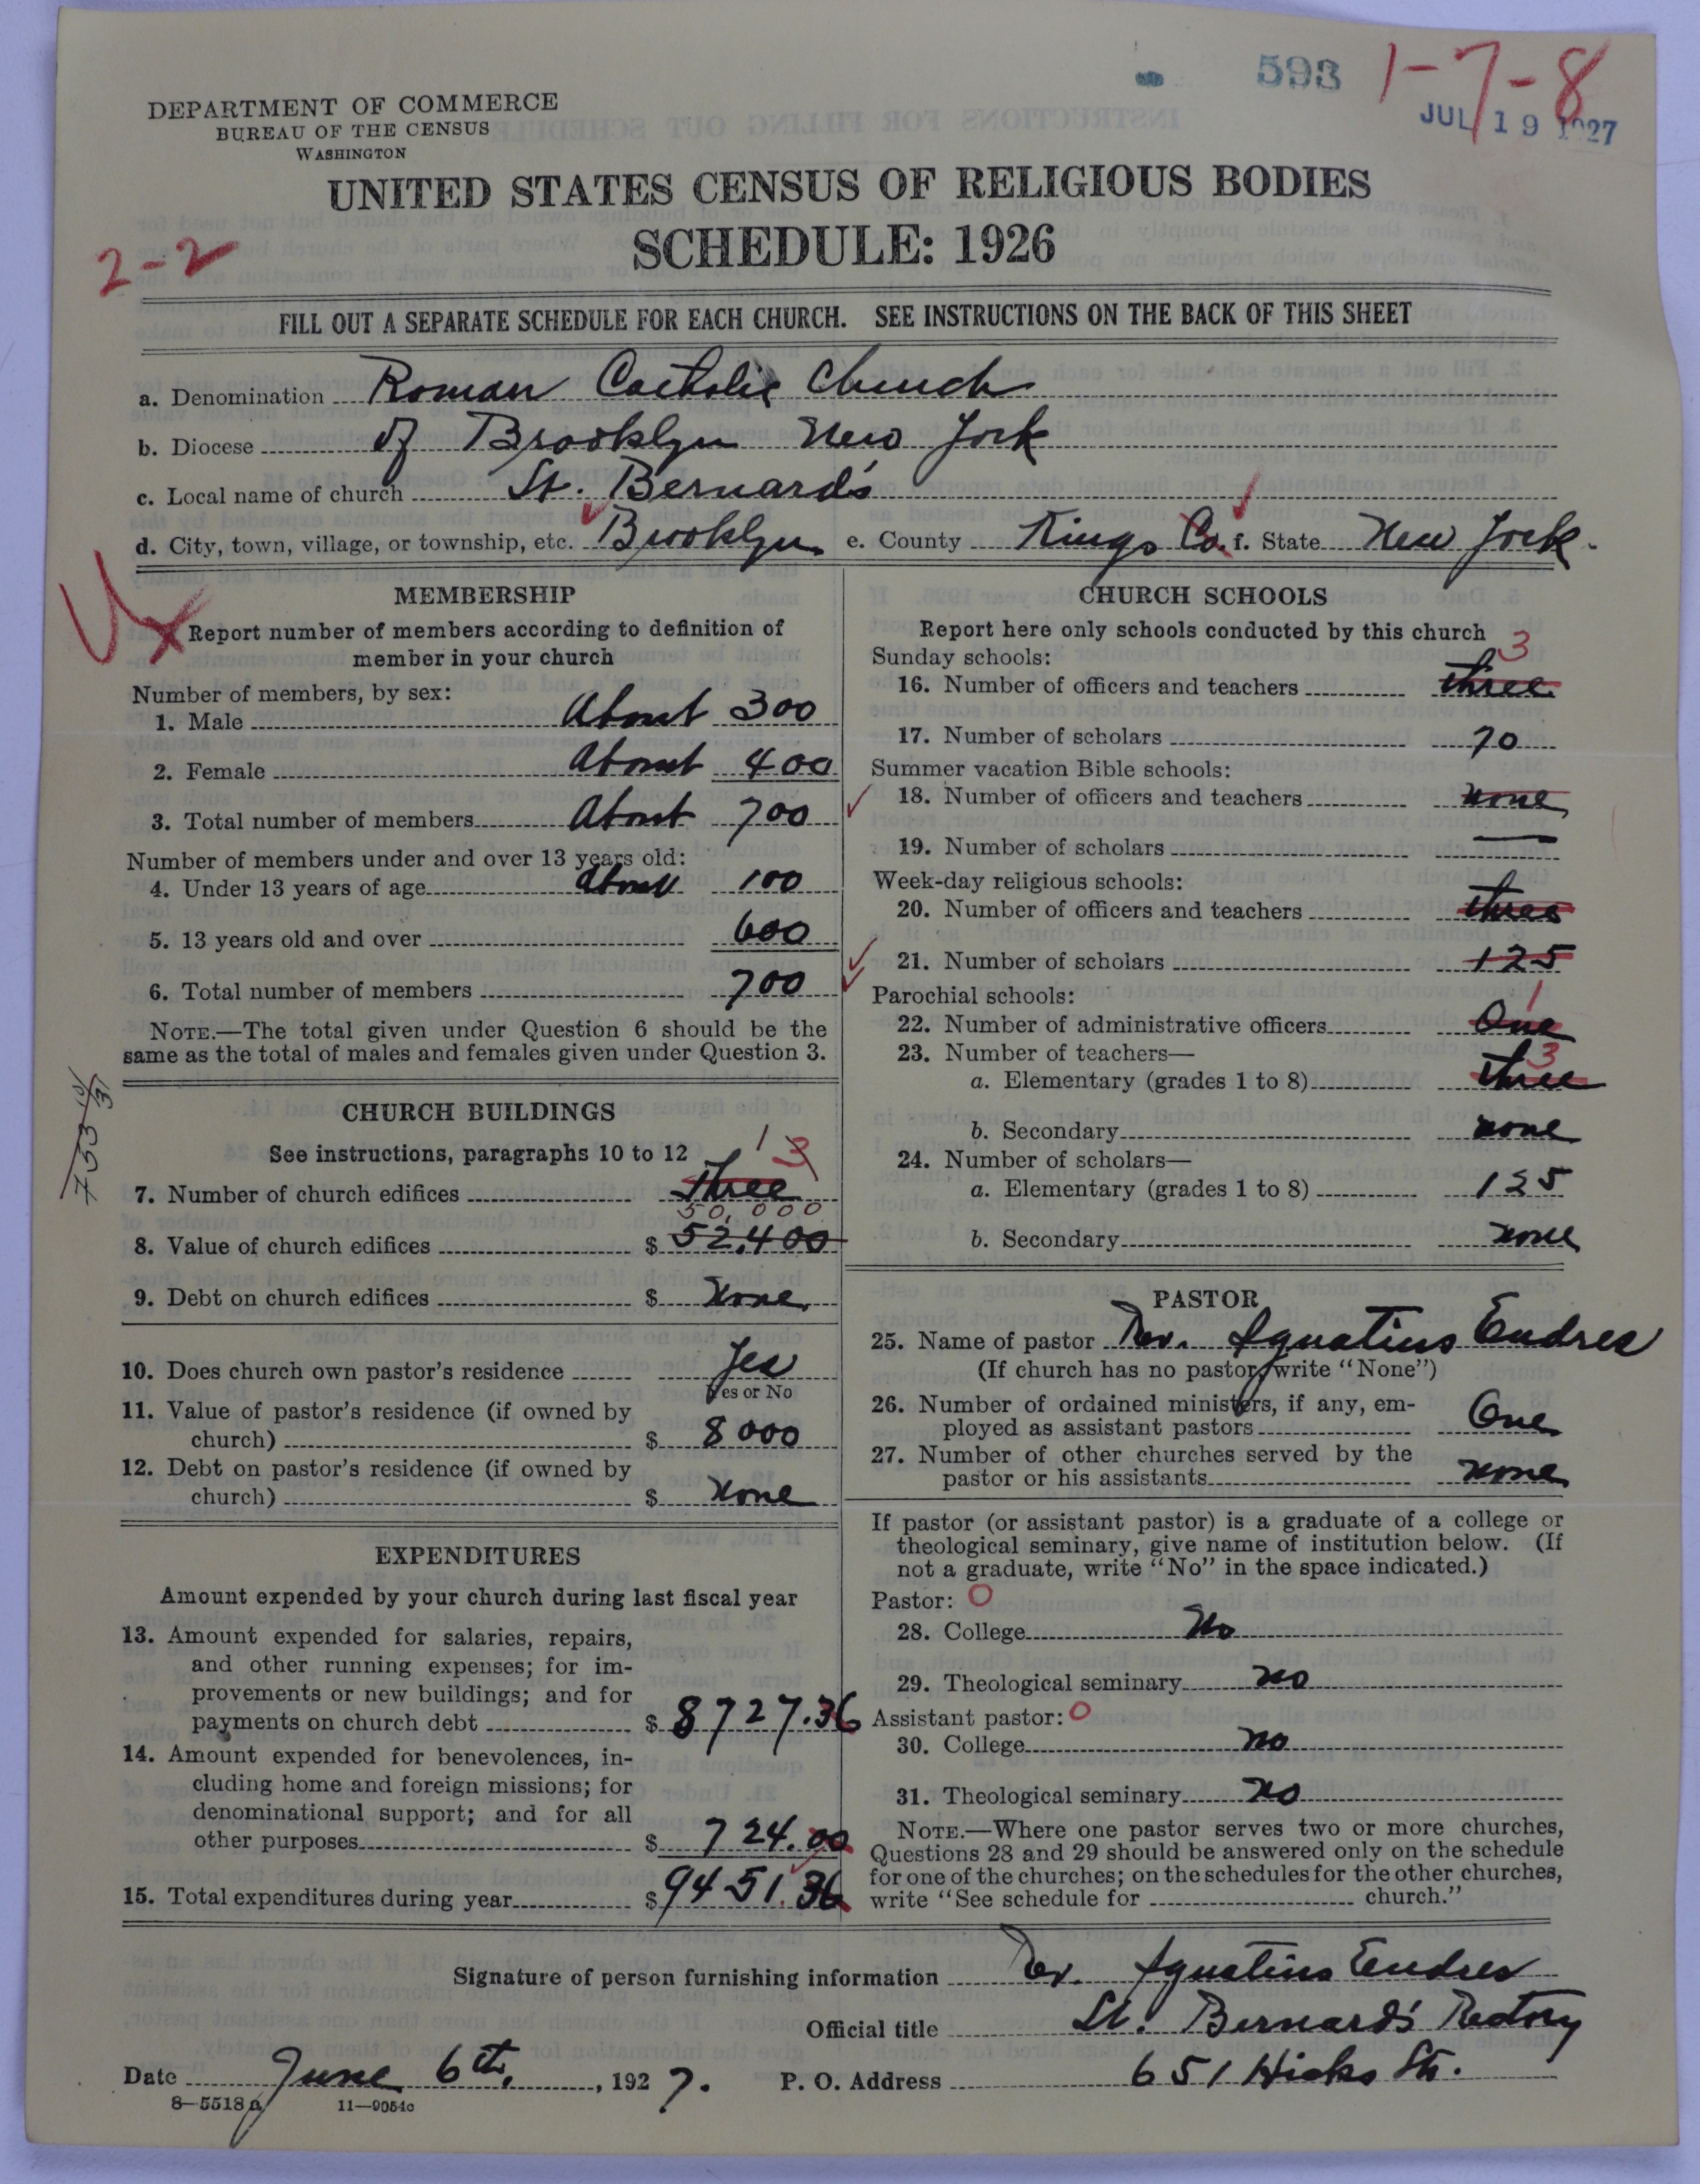 593 1-7-8
JUL 19 1927
DEPARTMENT OF COMMERCE
BUREAU OF THE CENSUS
WASHINGTON
UNITED STATES CENSUS OF RELIGIOUS BODIES
SCHEDULE: 1926
2-2
FILL OUT A SEPARATE SCHEDULE FOR EACH CHURCH. SEE INSTRUCTIONS ON THE BACK OF THIS SHEET
a. Denomination Roman Catholic Church
b. Diocese of Brooklyn New York
c. Local name of church St. Bernard's
d. City, town, village, or township, etc. Brooklyn e. County Kings Co. f. State New York.
MEMBERSHIP
Report number of members according to definition of
member in your church
Number of members, by sex:
1. Male About 300
2. Female About 400
3. Total number of members About 700
Number of members under and over 13 years old:
4. Under 13 years of age About 100
5. 13 years old and over 600
6. Total number of members 700
NOTE.—The total given under Question 6 should be the
same as the total of males and females given under Question 3.
CHURCH BUILDINGS
See instructions, paragraphs 10 to 12
1 3
7. Number of church edifices Three
50,000
8. Value of church edifices $ 52,400
9. Debt on church edifices $ None
10. Does church own pastor's residence Yes
Yes or No
11. Value of pastor's residence (if owned by
church) $ 8000
12. Debt on pastor's residence (if owned by
church) $ None
EXPENDITURES
Amount expended by your church during last fiscal year
13. Amount expended for salaries, repairs,
and other running expenses; for im-
provements or new buildings; and for
payments on church debt $ 8727.36
14. Amount expended for benevolences, in-
cluding home and foreign missions; for
denominational support; and for all
other purposes $ 724.00
15. Total expenditures during year $ 9451.36
CHURCH SCHOOLS
Report here only schools conducted by this church
Sunday schools: 3
16. Number of officers and teachers three
17. Number of scholars 70
Summer vacation Bible schools:
18. Number of officers and teachers none
19. Number of scholars —
Week-day religious schools:
20. Number of officers and teachers three
21. Number of scholars 125
Parochial schools: 1
22. Number of administrative officers One
23. Number of teachers— 3
a. Elementary (grades 1 to 8) three
b. Secondary none
24. Number of scholars—
a. Elementary (grades 1 to 8) 125
b. Secondary none
PASTOR
25. Name of pastor Rev. Ignatius Endres
(If church has no pastor, write "None")
26. Number of ordained ministers, if any, em-
ployed as assistant pastors One
27. Number of other churches served by the
pastor or his assistants none
If pastor (or assistant pastor) is a graduate of a college or
theological seminary, give name of institution below. (If
not a graduate, write "No" in the space indicated.)
Pastor: 0
28. College No
29. Theological seminary no
Assistant pastor: 0
30. College no
31. Theological seminary no
NOTE.—Where one pastor serves two or more churches,
Questions 28 and 29 should be answered only on the schedule
for one of the churches; on the schedules for the other churches,
write "See schedule for church."
Signature of person furnishing information Rev. Ignatius Endres
Official title St. Bernard's Rectory
Date June 6th, 1927. P. O. Address 651 Hicks St.
8—5518a 11—9054c